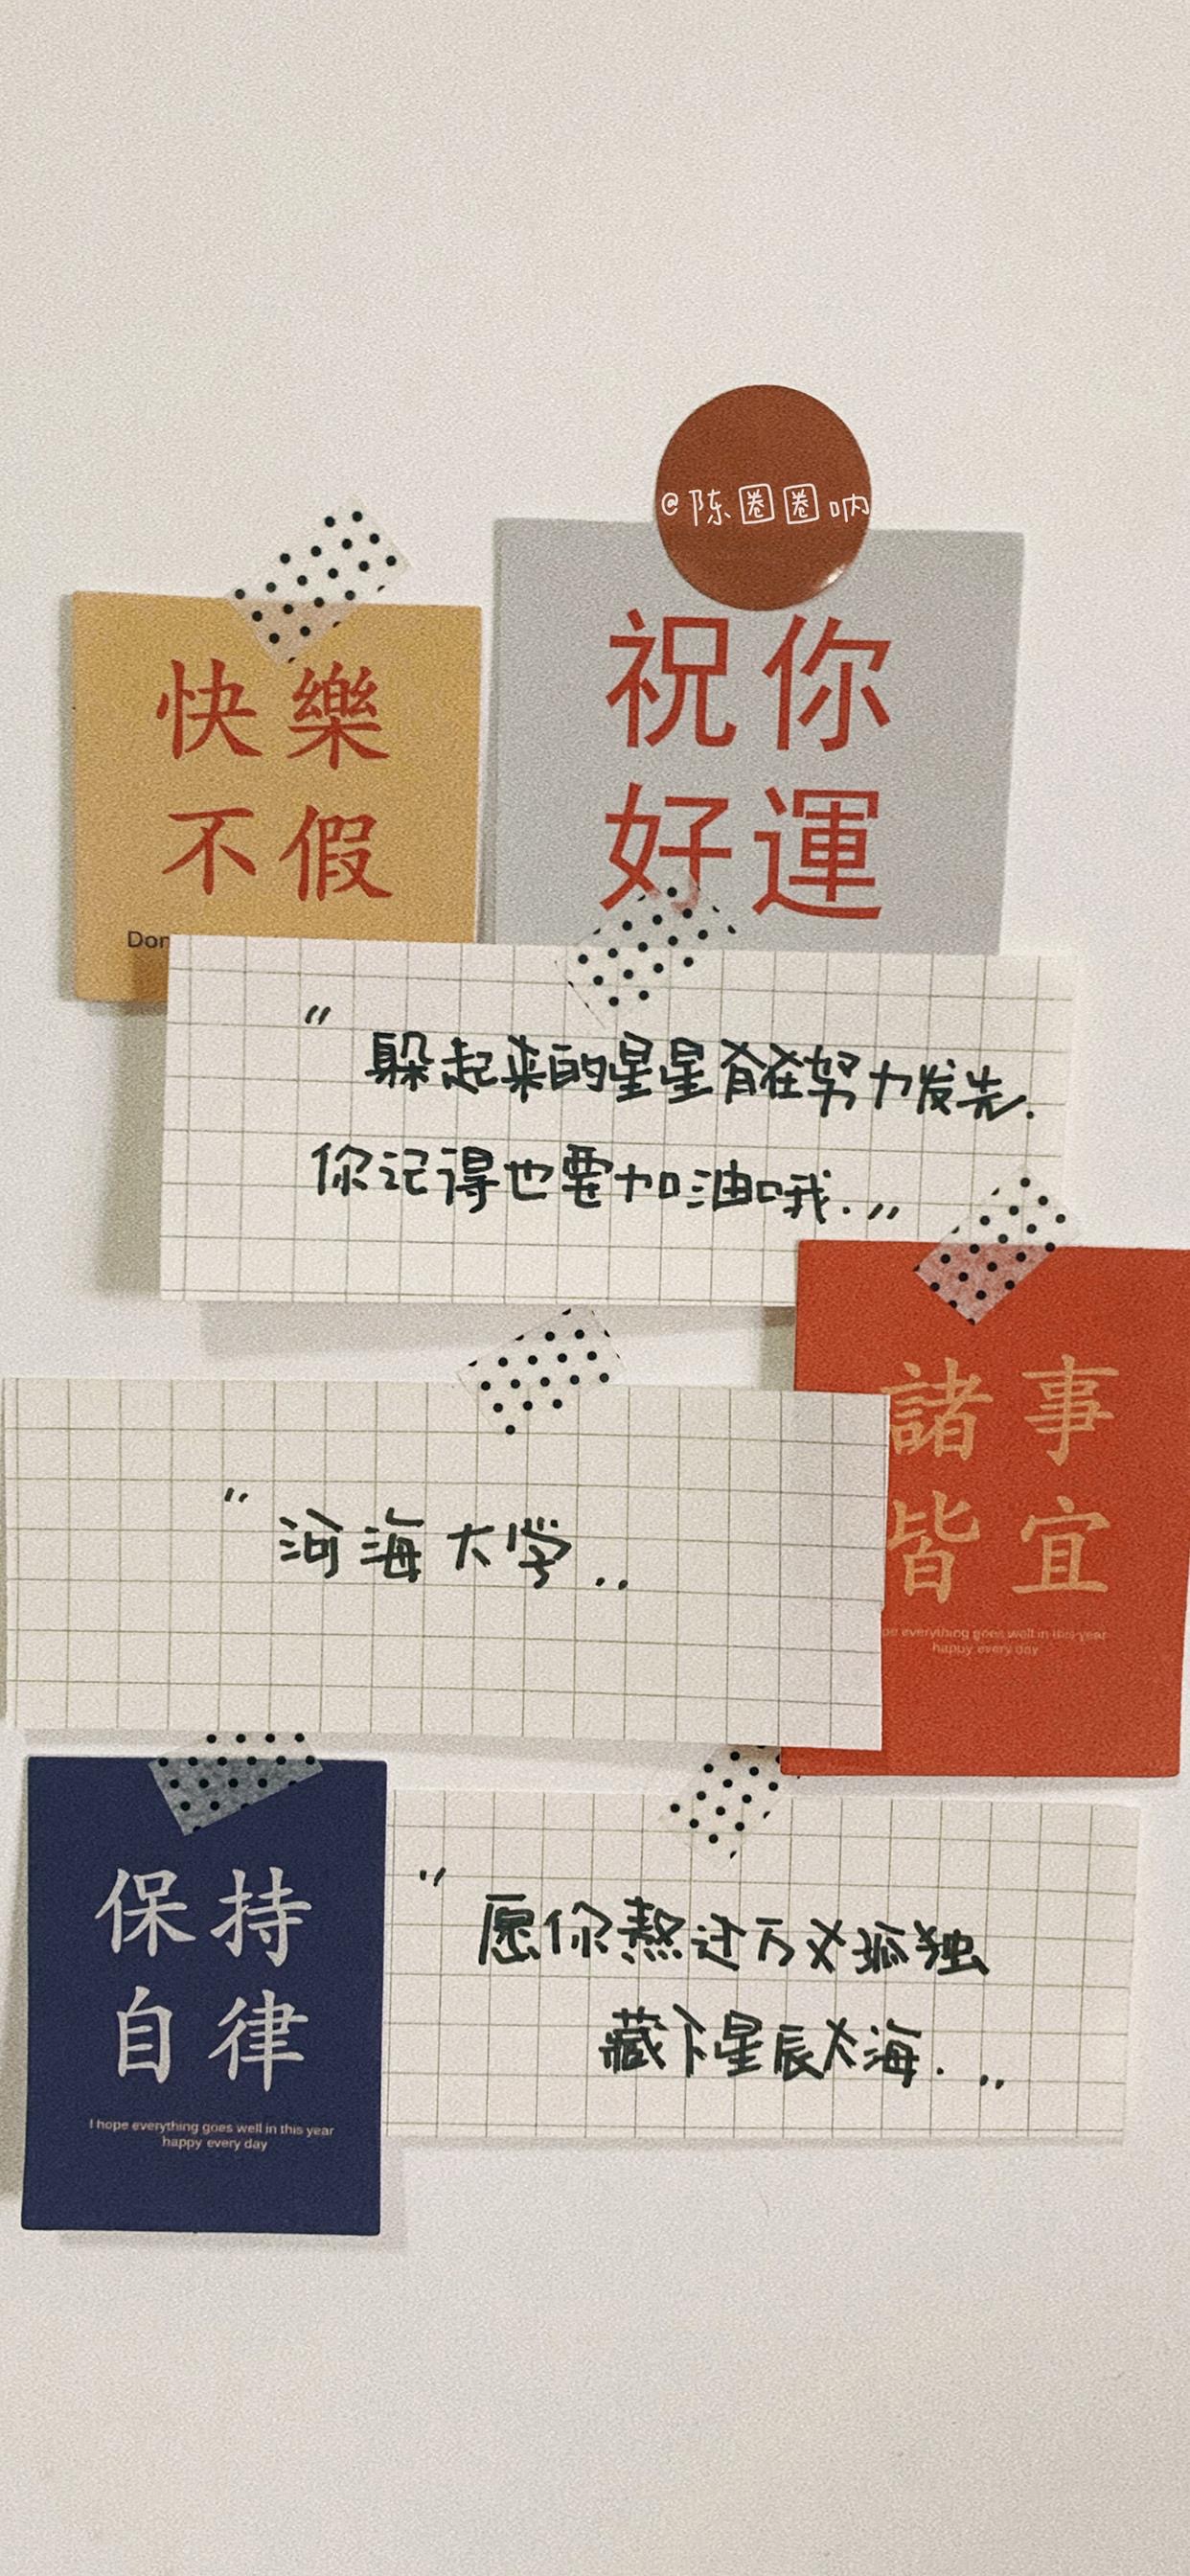 @陈圈圈呐
快樂
不假
Don
祝你
好運
"躲起来的星星有在努力发光.
你记得也要加油哦. "
諸事
皆宜
pe everything goes well in this year
happy every day
"河海大学..
保持
自律
I hope everything goes well in this year
happy every day
"愿你熬过万丈孤独
藏下星辰大海. ..